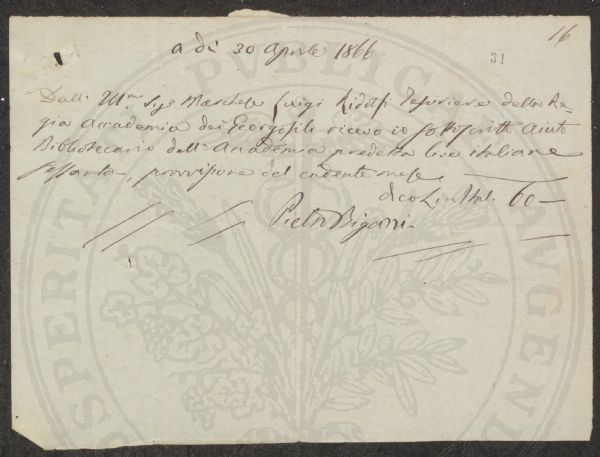 16
31
a dì 30 Aprile 1866
Dall' Ill.mo Sig.r Marchese Luigi Ridolfi Tesoriere della Re-
gia Accademia dei Georgofili ricevo io sottoscritto Aiuto
Bibliotecario dell' Accademia predetta lire italiane
sessanta, provvisione del cadente mese
dico L. Ital. 60 —
Pietro Bigazzi
PUBLICA
PROSPERITA
AUGENDA